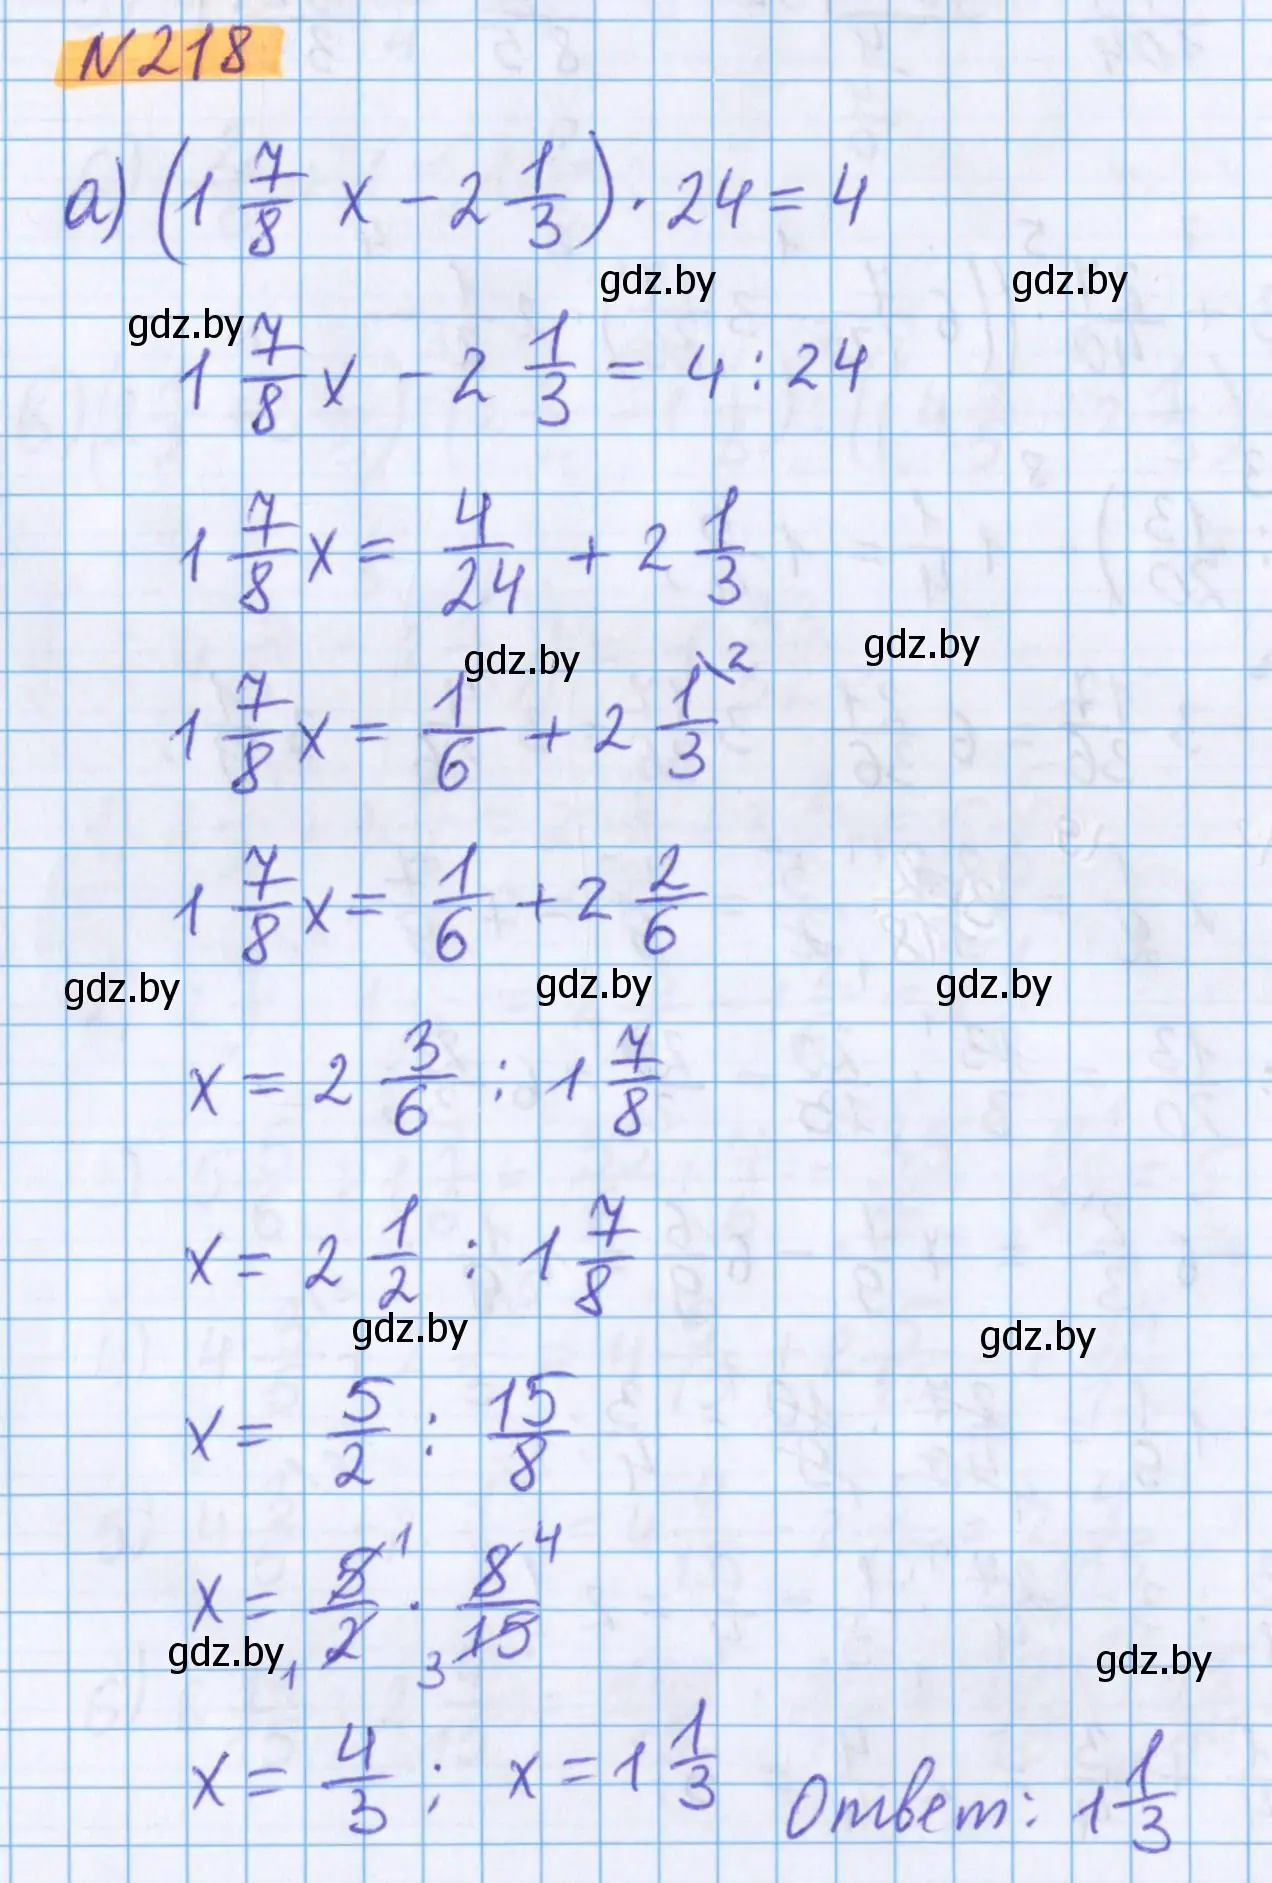 N 218
а) (1 7/8 x − 2 1/3) · 24 = 4
gdz.by gdz.by
gdz.by
1 7/8 x − 2 1/3 = 4 : 24
1 7/8 x = 4/24 + 2 1/3
gdz.by gdz.by
1 7/8 x = 1/6 + 2 1/3 \2
1 7/8 x = 1/6 + 2 2/6
gdz.by gdz.by gdz.by
x = 2 3/6 : 1 7/8
x = 2 1/2 : 1 7/8
gdz.by gdz.by
x = 5/2 : 15/8
x = 5 1/2 1 · 8 4/15 3
gdz.by gdz.by
x = 4/3 ; x = 1 1/3 Ответ: 1 1/3